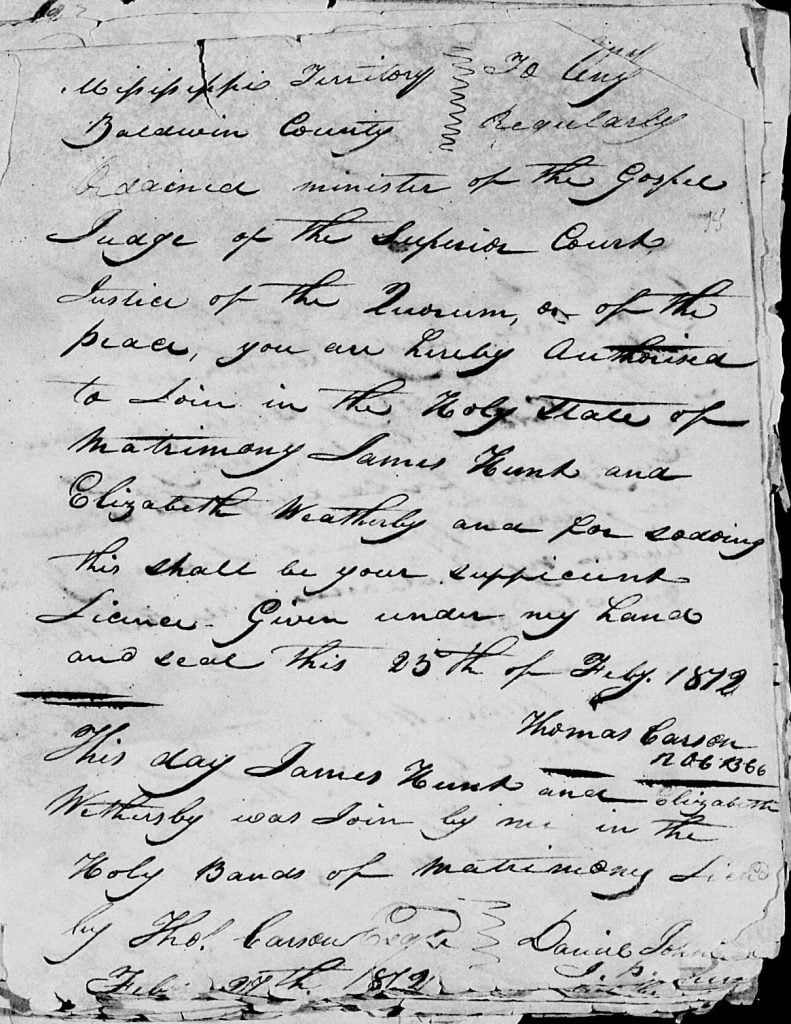 Missisippi Territory To Any
Baldwin County Regularly
Ordained minister of the Gospel
Judge of the Superior Court,
Justice of the Quorum, or of the
peace, you are hereby Authorised
to Join in the Holy State of
Matrimony James Hunt and
Elizabeth Weatherby and for sodoing
this shall be your sufficient
Licence. Given under my hand
and seal this 25th of Feby. 1812
Thomas Carson
This day James Hunt and Elizabeth
Wethersby was Join by me in the
Holy Bands of Matrimony
by Tho. Carson
Daniel
Feb. 27th. 1812 J. P.